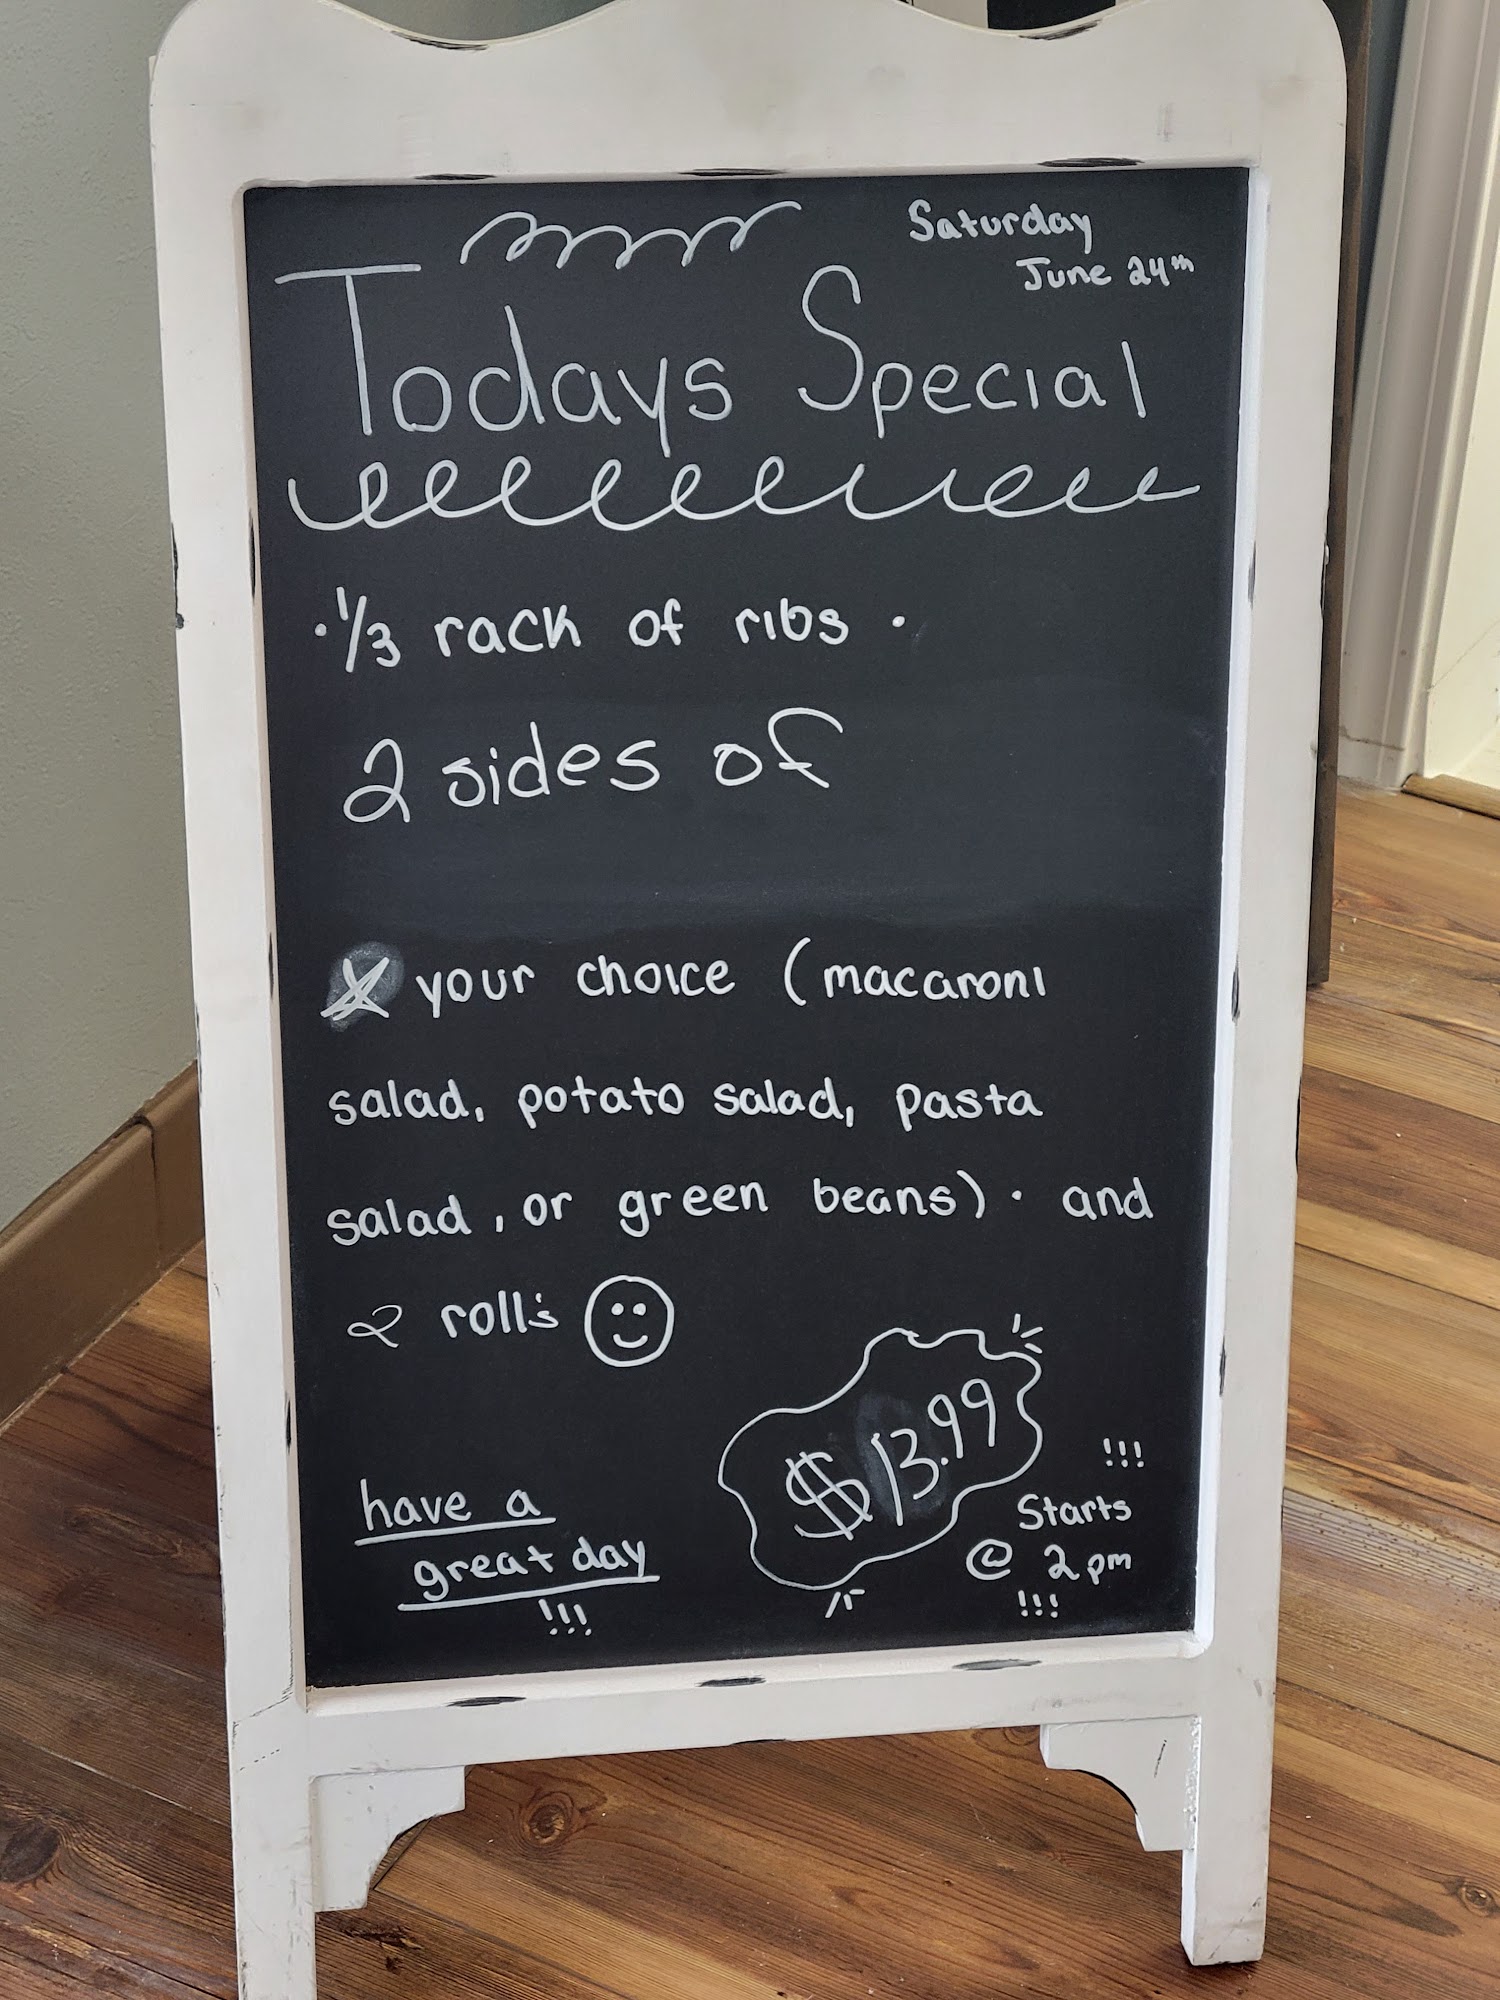 Saturday
June 24th
Todays Special
· 1/3 rack of ribs ·
2 sides of
your choice (macaroni
salad, potato salad, pasta
salad, or green beans) · and
2 roll's
$13.99
!!!
Starts
@ 2pm
!!!
have a
great day
!!!